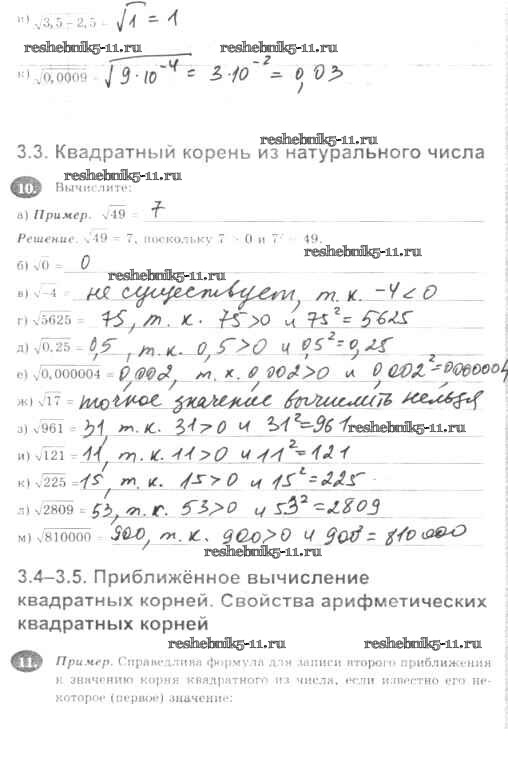 и) √3,5 - 2,5 = √1 = 1
reshebnik5-11.ru reshebnik5-11.ru
к) √0,0009 = √9·10⁻⁴ = 3·10⁻² = 0,03
reshebnik5-11.ru
3.3. Квадратный корень из натурального числа
reshebnik5-11.ru
10. Вычислите:
а) Пример. √49 = 7
Решение. √49 = 7, поскольку 7 > 0 и 7² = 49.
б) √0 = 0
reshebnik5-11.ru
в) √-4 = не существует, т. к. -4 < 0
г) √5625 = 75, т. к. 75>0 и 75² = 5625
д) √0,25 = 0,5, т. к. 0,5>0 и 0,5² = 0,25
е) √0,000004 = 0,002, т. к. 0,002>0 и 0,002² = 0,000004
ж) √17 = точное значение вычислить нельзя
з) √961 = 31, т. к. 31>0 и 31² = 961
reshebnik5-11.ru
и) √121 = 11, т. к. 11>0 и 11² = 121
к) √225 = 15, т. к. 15>0 и 15² = 225
л) √2809 = 53, т. к. 53>0 и 53² = 2809
м) √810000 = 900, т. к. 900>0 и 900² = 810000
reshebnik5-11.ru
3.4–3.5. Приближённое вычисление
квадратных корней. Свойства арифметических
квадратных корней
reshebnik5-11.ru reshebnik5-11.ru
11. Пример. Справедлива формула для записи второго приближения
к значению корня квадратного из числа, если известно его не-
которое (первое) значение:
reshebnik5-11.ru